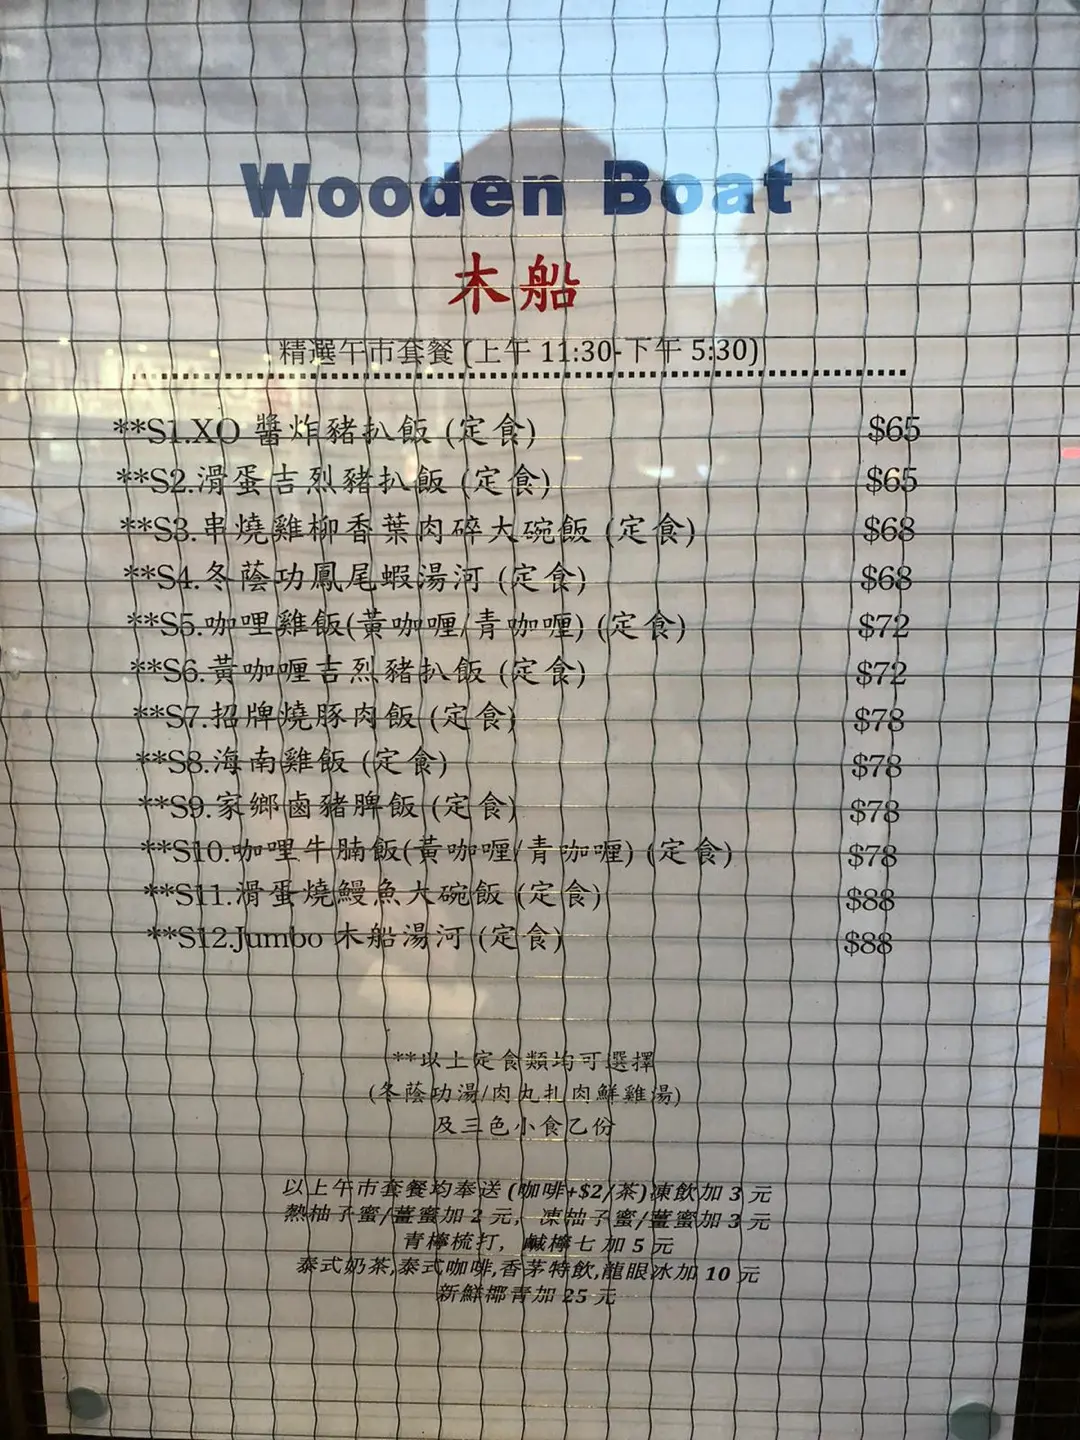 Wooden Boat
木船
精選午市套餐 (上午 11:30-下午 5:30)
**S1.XO 醬炸豬扒飯 (定食) $65
**S2.滑蛋吉烈豬扒飯 (定食) $65
**S3.串燒雞柳香葉肉碎大碗飯 (定食) $68
**S4.冬蔭功鳳尾蝦湯河 (定食) $68
**S5.咖哩雞飯(黃咖喱/青咖喱) (定食) $72
**S6.黃咖喱吉烈豬扒飯 (定食) $72
**S7.招牌燒豚肉飯 (定食) $78
**S8.海南雞飯 (定食) $78
**S9.家鄉鹵豬脾飯 (定食) $78
**S10.咖哩牛腩飯(黃咖喱/青咖喱) (定食) $78
**S11.滑蛋燒鰻魚大碗飯 (定食) $88
**S12.Jumbo 木船湯河 (定食) $88
**以上定食類均可選擇
(冬蔭功湯/肉丸扎肉鮮雞湯)
及三色小食乙份
以上午市套餐均奉送 (咖啡+$2/茶)凍飲加 3 元
熱柚子蜜/薑蜜加 2 元, 凍柚子蜜/薑蜜加 3 元
青檸梳打, 鹹檸七 加 5 元
泰式奶茶,泰式咖啡,香茅特飲,龍眼冰加 10 元
新鮮椰青加 25 元